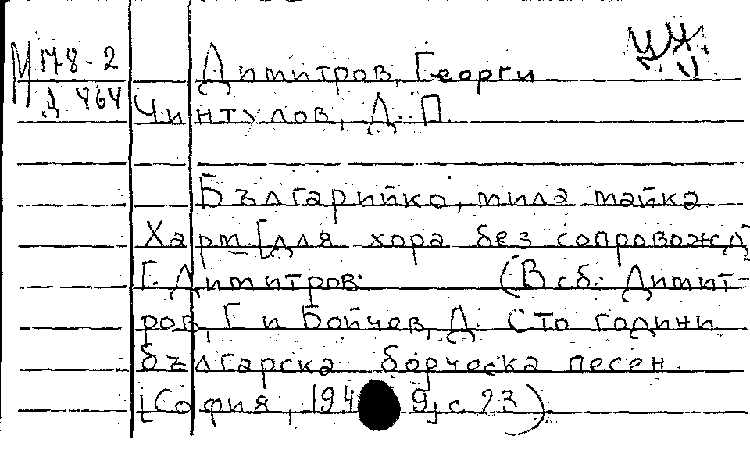 М 178-2 Димитров, Георги
Д 464 Чинтулов, Д. П.
Българийко, мила майка
Харм. [для хора без сопровожд]
Г. Димитров. (В сб: Димит-
ров, Г и Бойчев, Д. Сто години
българска борческа песен.
[София, 194 9, с 23).